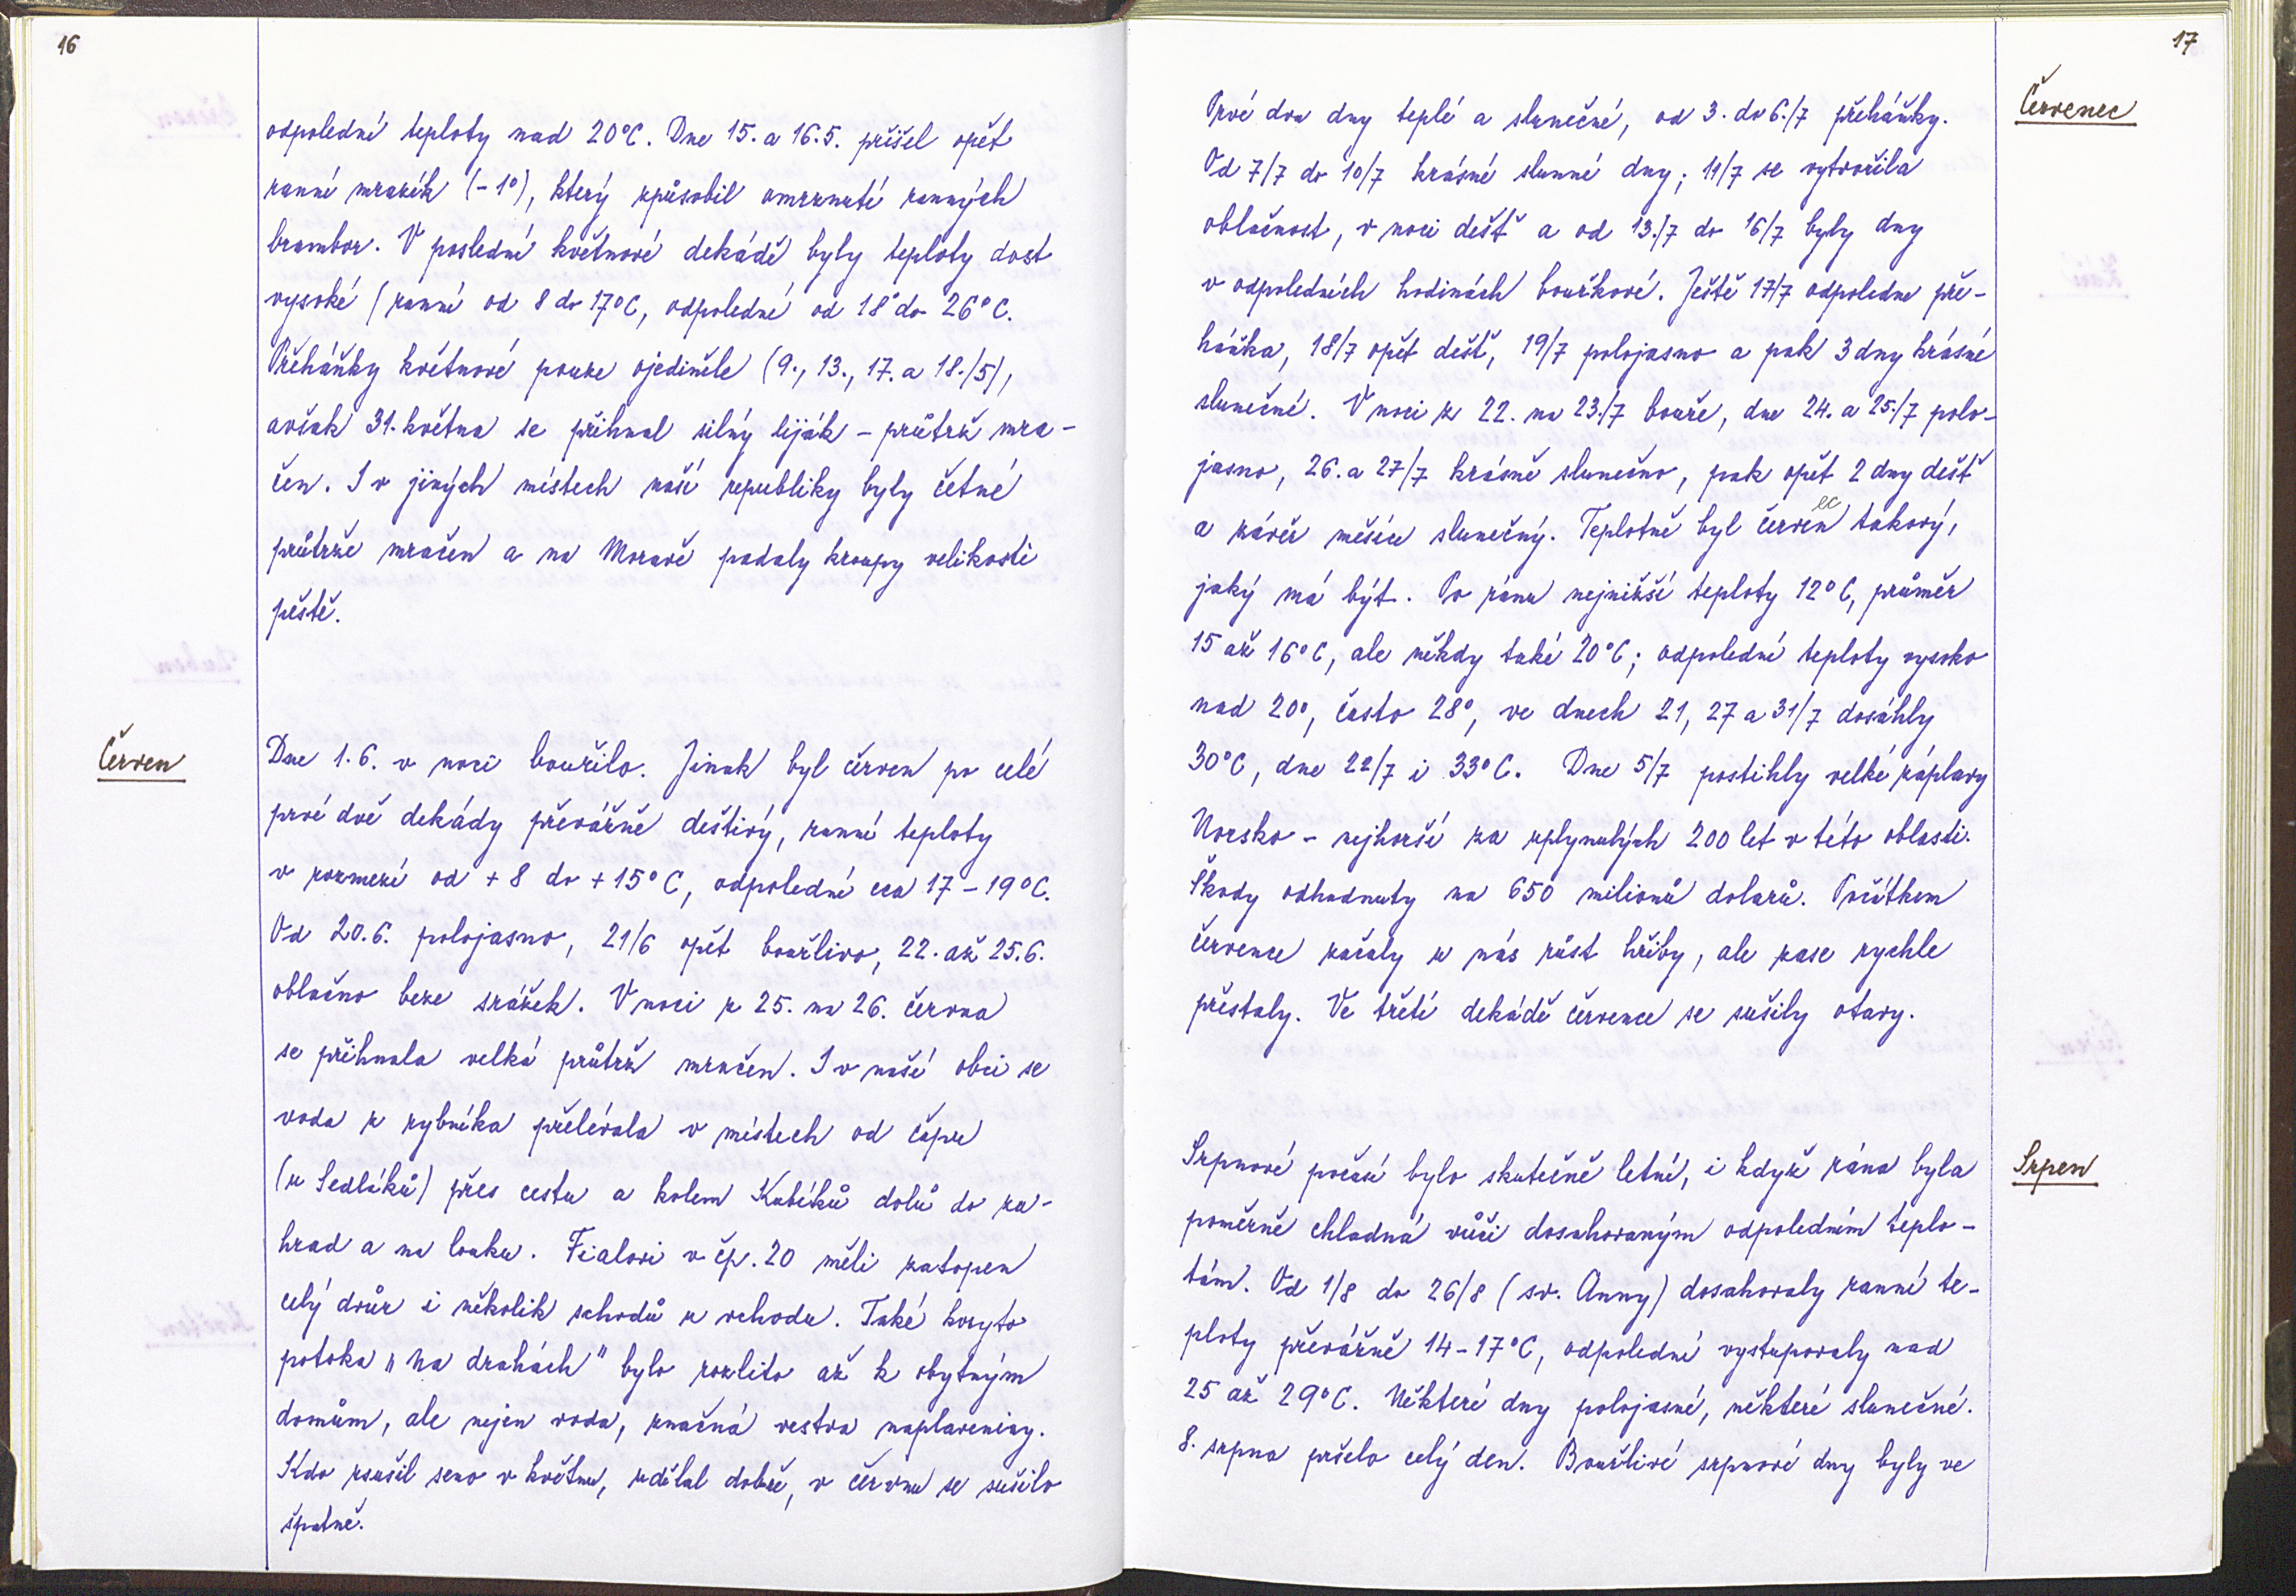 16
odpolední teploty nad 20°C. Dne 15. a 16.5. přišel opět
ranní mrazík (-1°), který způsobil omrznutí ranných
brambor. V poslední květnové dekádě byly teploty dost
vysoké (ranní od 8 do 17°C, odpolední od 18° do 26°C.
Přeháňky květnové pouze ojediněle (9., 13., 17. a 18./5),
avšak 31. května se přihnal silný liják - průtrž mra-
čen. I v jiných místech naší republiky byly četné
průtrže mračen a na Moravě padaly kroupy velikosti
pěstě.
Červen
Dne 1.6. v noci bouřilo. Jinak byl červen po celé
prvé dvě dekády převážně deštivý, ranní teploty
v rozmezí od +8 do +15°C, odpolední cca 17-19°C.
Od 20.6. polojasno, 21/6 opět bouřlivo, 22. až 25.6.
oblačno beze srážek. V noci z 25. na 26. června
se přihnala velká průtrž mračen. I v naší obci se
voda z rybníka přelévala v místech od čapu
(u Sedláků) přes cestu a kolem Kubíků dolů do za-
hrad a na louku. Fialovi v čp. 20 měli zatopen
celý dvůr i několik schodů u vchodu. Také koryto
potoka „Na drahách" bylo rozlito až k obytným
domům, ale nejen voda, značná vrstva naplaveniny.
Kdo usušil seno v květnu, udělal dobře, v červnu se sušilo
špatně.
17
Červenec
Prvé dva dny teplé a slunečné, od 3. do 6./7 přeháňky.
Od 7/7 do 10/7 krásné slunné dny; 11/7 se vytvořila
oblačnost, v noci déšť a od 13./7 do 16/7 byly dny
v odpoledních hodinách bouřkové. Ještě 17/7 odpoledne pře-
háňka, 18/7 opět déšť, 19/7 polojasno a pak 3 dny krásné
slunečné. V noci z 22. na 23./7 bouře, dne 24. a 25./7 polo-
jasno, 26. a 27/7 krásně slunečno, pak opět 2 dny déšť
a závěr měsíce slunečný. Teplotně byl červenec takový,
jaký má být. Po ránu nejnižší teploty 12°C, průměr
15 až 16°C, ale někdy také 20°C; odpolední teploty vysoko
nad 20°, často 28°, ve dnech 21, 27 a 31/7 dosáhly
30°C, dne 22/7 i 33°C. Dne 5/7 postihly velké záplavy
Norsko - nejhorší za uplynulých 200 let v této oblasti.
Škody odhadnuty na 650 milionů dolarů. Počátkem
července začaly u nás růst hřiby, ale zase rychle
přestaly. Ve třetí dekádě července se sušily otavy.
Srpen
Srpnové počasí bylo skutečně letní, i když rána byla
poměrně chladná vůči dosahovaným odpoledním teplo-
tám. Od 1/8 do 26/8 (sv. Anny) dosahovaly ranní te-
ploty převážně 14-17°C, odpolední vystupovaly nad
25 až 29°C. Některé dny polojasné, některé slunečné.
8. srpna pršelo celý den. Bouřlivé srpnové dny byly ve